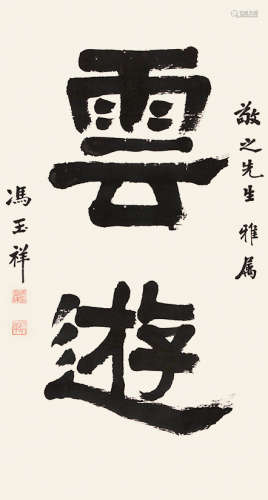 敬之先生 雅属
雲遊
馮玉祥